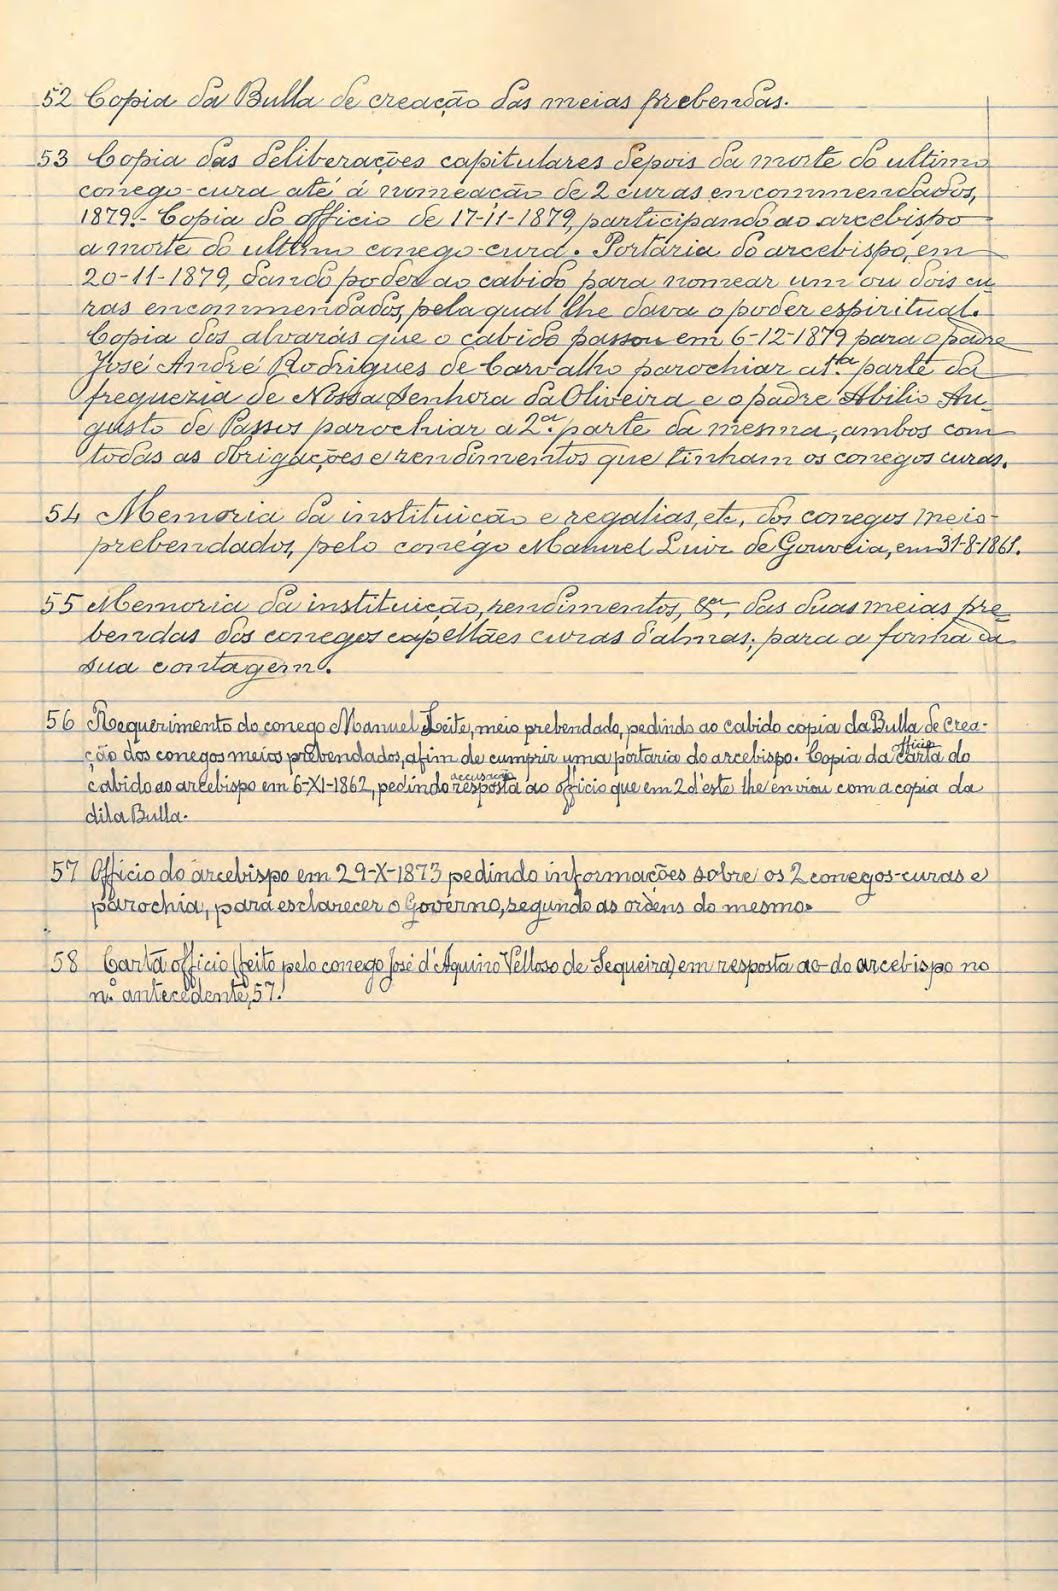 52 Copia da Bulla de creação das meias prebendas.
53 Copia das deliberações capitulares depois da morte do ultimo
conego-cura até á nomeação de 2 curas encommendados,
1879.- Copia do officio de 17-11-1879, participando ao arcebispo
a morte do ultimo conego-cura. Portaria do arcebispo, em
20-11-1879, dando poder ao cabido para nomear um ou dois cu-
ras encommendados, pela qual lhe dava o poder espiritual.
Copia dos alvarás que o cabido passou em 6-12-1879 para o padre
José André Rodrigues de Carvalho parochiar a 1.ª parte da
freguezia de Nossa Senhora da Oliveira e o padre Abilio Au-
gusto de Passos parochiar a 2.ª parte da mesma, ambos com
todas as obrigações e rendimentos que tinham os conegos curas.
54 Memoria da instituição e regalias, etc, dos conegos meio-
prebendados, pelo conego Manuel Luiz de Gouveia, em 31-8-1861.
55 Memoria da instituição, rendimentos, &ª, das duas meias pre-
bendas dos conegos capellães curas d'almas; para a forma da
sua contagem.
56 Requerimento do conego Manuel Leite, meio prebendado, pedindo ao cabido copia da Bulla de crea-
ção dos conegos meios prebendados, afim de cumprir uma portaria do arcebispo. Copia da carta officio do
cabido ao arcebispo em 6-XI-1862, pedindo resposta accusação ao officio que em 2 d'este lhe enviou com a copia da
dita Bulla.
57 Officio do arcebispo em 29-X-1873 pedindo informações sobre os 2 conegos-curas e
parochia, para esclarecer o Governo, segundo as ordens do mesmo.
58 Carta officio (feito pelo conego José d'Aquino Velloso de Sequeira) em resposta ao do arcebispo no
n.º antecedente, 57.